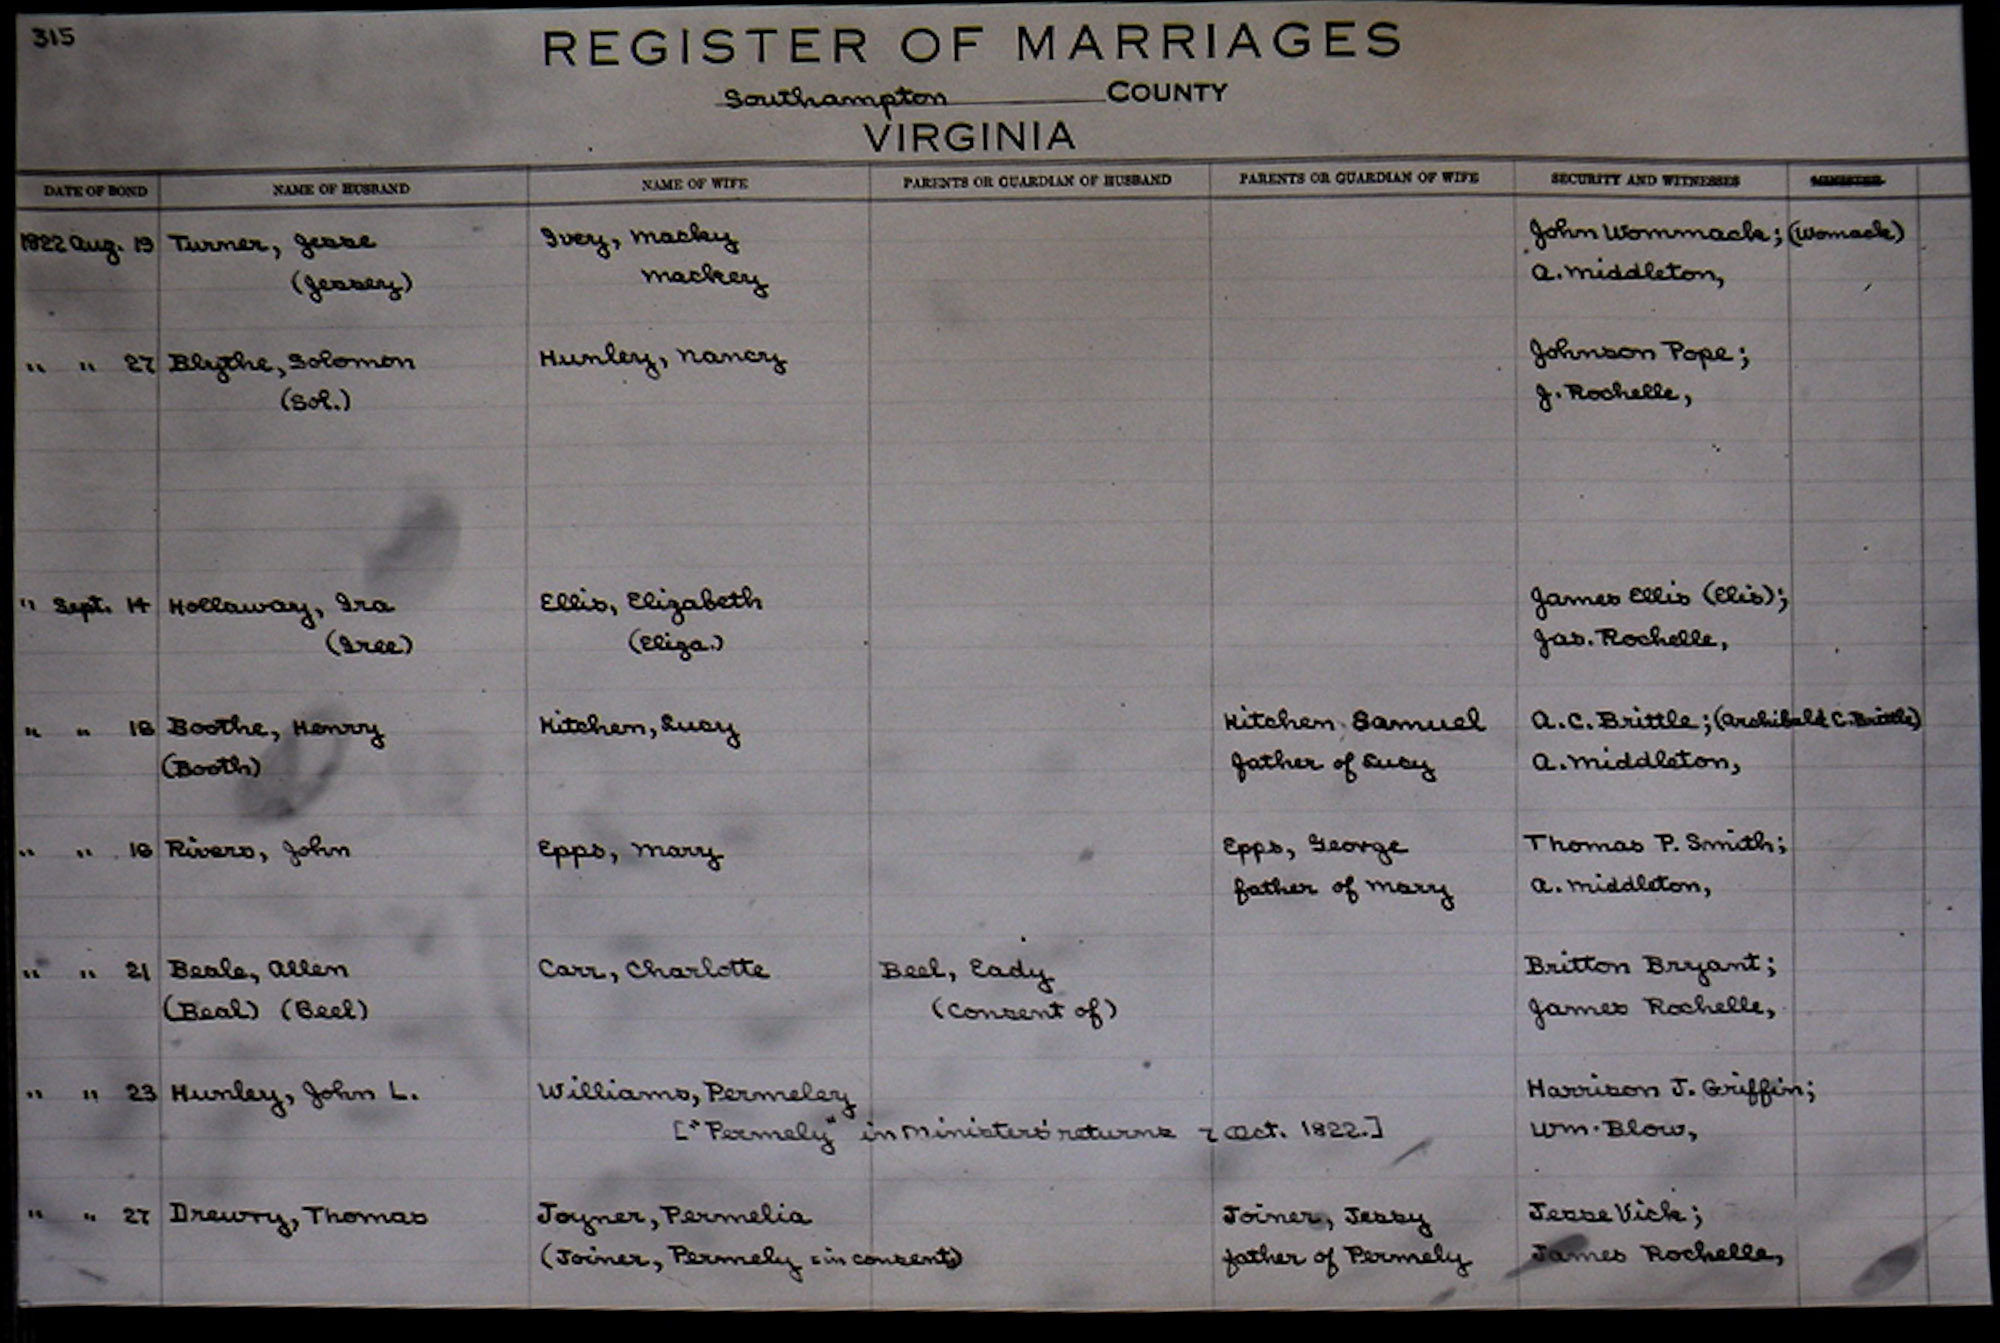 315
REGISTER OF MARRIAGES
Southampton COUNTY
VIRGINIA
DATE OF BOND NAME OF HUSBAND NAME OF WIFE PARENTS OR GUARDIAN OF HUSBAND PARENTS OR GUARDIAN OF WIFE SECURITY AND WITNESSES MINISTER
1822 Aug. 19 Turner, Jesse Ivey, Macky John Wommack; (Womack)
(Jessey) Mackey A. Middleton,
" " 27 Blythe, Solomon Hunley, Nancy Johnson Pope;
(Sol.) J. Rochelle,
" Sept. 14 Hollaway, Ira Ellis, Elizabeth James Ellis (Elis);
(Iree) (Eliza.) Jas. Rochelle,
" " 16 Boothe, Henry Kitchen, Lucy Kitchen Samuel A.C. Brittle; (Archibald C. Brittle)
(Booth) father of Lucy A. Middleton,
" " 16 Rivers, John Epps, Mary Epps, George Thomas P. Smith;
father of Mary A. Middleton,
" " 21 Beale, Allen Carr, Charlotte Beel, Eady Britton Bryant;
(Beal) (Beel) (Consent of) James Rochelle,
" " 23 Hunley, John L. Williams, Permeley Harrison J. Griffin;
["Permely" in Ministers' returns 7 Oct. 1822.] Wm. Blow,
" " 27 Drewry, Thomas Joyner, Permelia Joiner, Jessy Jesse Vick;
(Joiner, Permely = in consent) father of Permely James Rochelle,